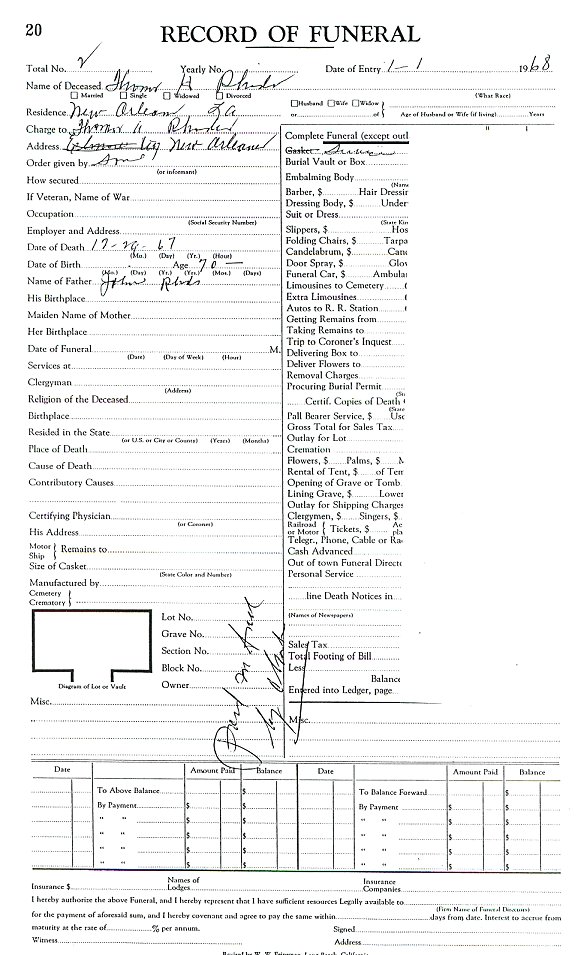 20
RECORD OF FUNERAL
Total No. Yearly No. Date of Entry 1-1 1968
Name of Deceased H
Married Single Widowed Divorced
(What Race)
Residence New Orleans La
Husband Wife Widow
or of Age of Husband or Wife (if living) Years
Charge to
Address New Orleans
Order given by
(or informant)
How secured
If Veteran, Name of War
Occupation
(Social Security Number)
Employer and Address
Date of Death 12-29-67
(Mo.) (Day) (Yr.) (Hour)
Date of Birth Age 70 —
(Mo.) (Day) (Yr.) (Yrs.) (Mos.) (Days)
Name of Father John
His Birthplace
Maiden Name of Mother
Her Birthplace
Date of Funeral M.
(Date) (Day of Week) (Hour)
Services at
Clergyman
(Address)
Religion of the Deceased
Birthplace
Resided in the State
(or U.S. or City or County) (Years) (Months)
Place of Death
Cause of Death
Contributory Causes
Certifying Physician
(or Coroner)
His Address
Motor Ship } Remains to
Size of Casket
(State Color and Number)
Manufactured by
Cemetery Crematory {
Lot No.
Grave No.
Section No.
Block No.
Owner
Diagram of Lot or Vault
Misc.
Complete Funeral (except outl
Casket
Burial Vault or Box
Embalming Body
(Name
Barber, $ Hair Dressi
Dressing Body, $ Under
Suit or Dress
(State Kin
Slippers, $ Hos
Folding Chairs, $ Tarpa
Candelabrum, $ Cand
Door Spray, $ Glov
Funeral Car, $ Ambula
Limousines to Cemetery (
Extra Limousines (
Autos to R. R. Station (
Getting Remains from
Taking Remains to
Trip to Coroner's Inquest
Delivering Box to
Deliver Flowers to
Removal Charges
Procuring Burial Permit
(St
Certif. Copies of Death
(State
Pall Bearer Service, $ Use
Gross Total for Sales Tax
Outlay for Lot
Cremation
Flowers, $ Palms, $ M
Rental of Tent, $ of Tem
Opening of Grave or Tomb
Lining Grave, $ Lower
Outlay for Shipping Charges
Clergymen, $ Singers, $
Railroad or Motor { Tickets, $ Ae pla
Telegr., Phone, Cable or Ra
Cash Advanced
Out of town Funeral Directo
Personal Service
line Death Notices in
(Names of Newspapers)
Sales Tax
Total Footing of Bill
Less
Balance
Entered into Ledger, page
Misc.
Date Amount Paid Balance Date Amount Paid Balance
To Above Balance $ To Balance Forward $
By Payment $ $ By Payment $ $
" " $ $ " " $ $
" " $ $ " " $ $
" " $ $ " " $ $
" " $ $ " " $ $
Insurance $ Names of Lodges Insurance Companies
I hereby authorize the above Funeral, and I hereby represent that I have sufficient resources Legally available to
(Firm Name of Funeral Directors)
for the payment of aforesaid sum, and I hereby covenant and agree to pay the same within days from date. Interest to accrue from
maturity at the rate of % per annum. Signed
Witness Address